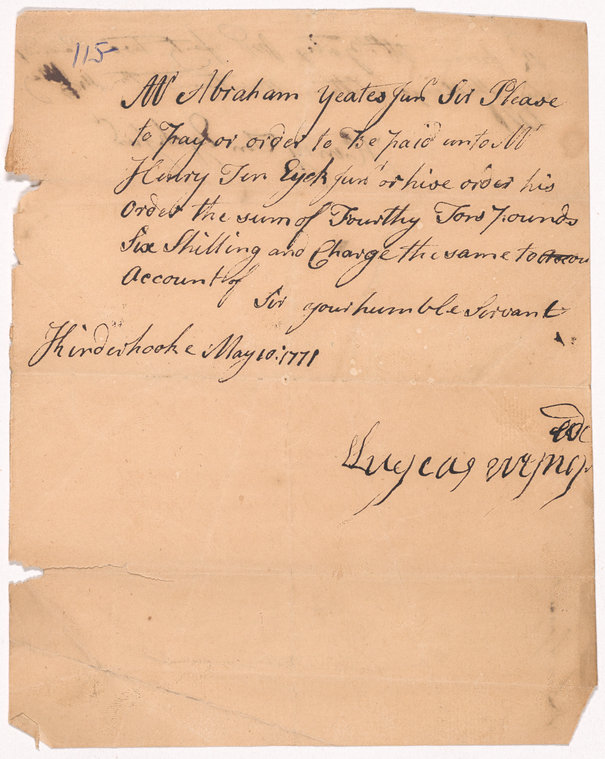 115
Mr Abraham Yeates Junr Sir Please
to pay or order to be paid unto Mr
Henry Ten Eyck Junr or hise order his
order the sum of Fourthy Pounds
Six Shilling and Charge the same to
Account of
Sir your humble Servant
Kinderhooke May 10: 1771
Luycas